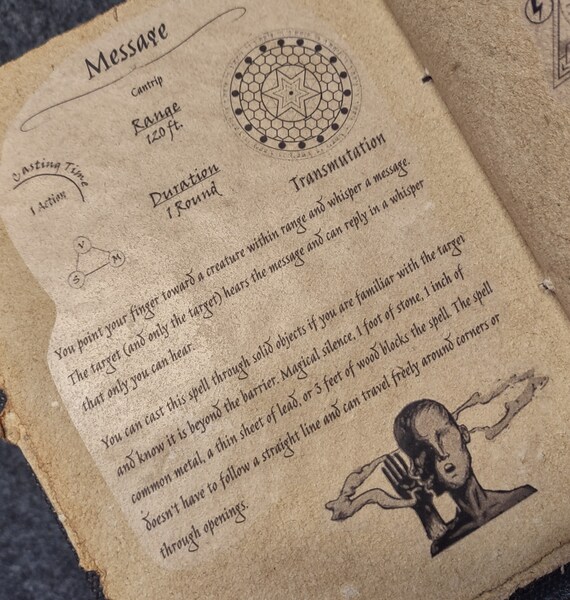 Message
Cantrip
Range
120 ft.
Casting Time
1 Action
Duration
1 Round
Transmutation
V
S
M
You point your finger toward a creature within range and whisper a message.
The target (and only the target) hears the message and can reply in a whisper
that only you can hear.
You can cast this spell through solid objects if you are familiar with the target
and know it is beyond the barrier. Magical silence, 1 foot of stone, 1 inch of
common metal, a thin sheet of lead, or 3 feet of wood blocks the spell. The spell
doesn't have to follow a straight line and can travel freely around corners or
through openings.